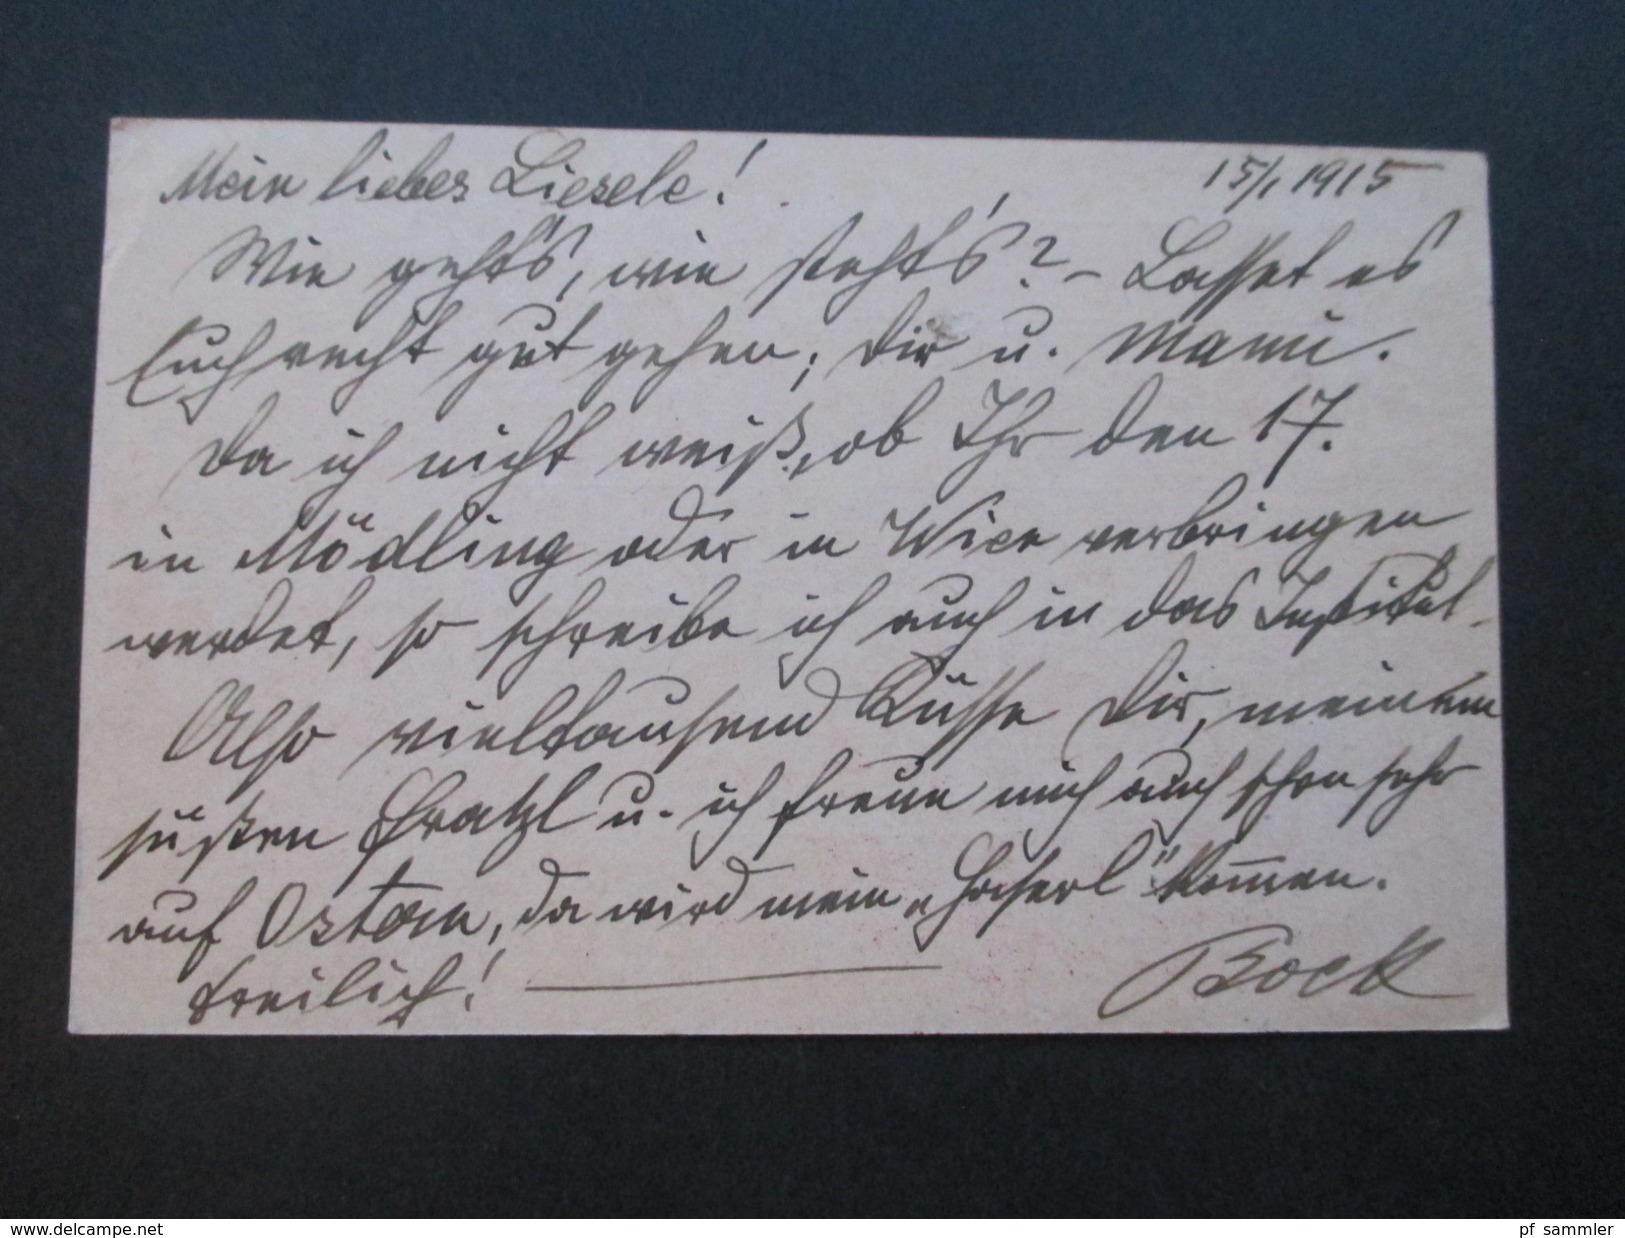 Mein liebes Liesele! 15/1 1915
Wie geht's, wie steht's? – Lasset es
Euch recht gut gehen, Dir u. Mami.
Da ich nicht weiß, ob Ihr den 17.
in Mödling oder in Wien verbringen
werdet, so schreibe ich auch in das Institut.
Also vieltausend Küsse Dir, meinem
süßen Fratzl u. ich freue mich auch schon sehr
auf Ostern, da wird mein „Haserl" kommen.
freilich! Bock
www.delcampe.net
pf_sammler